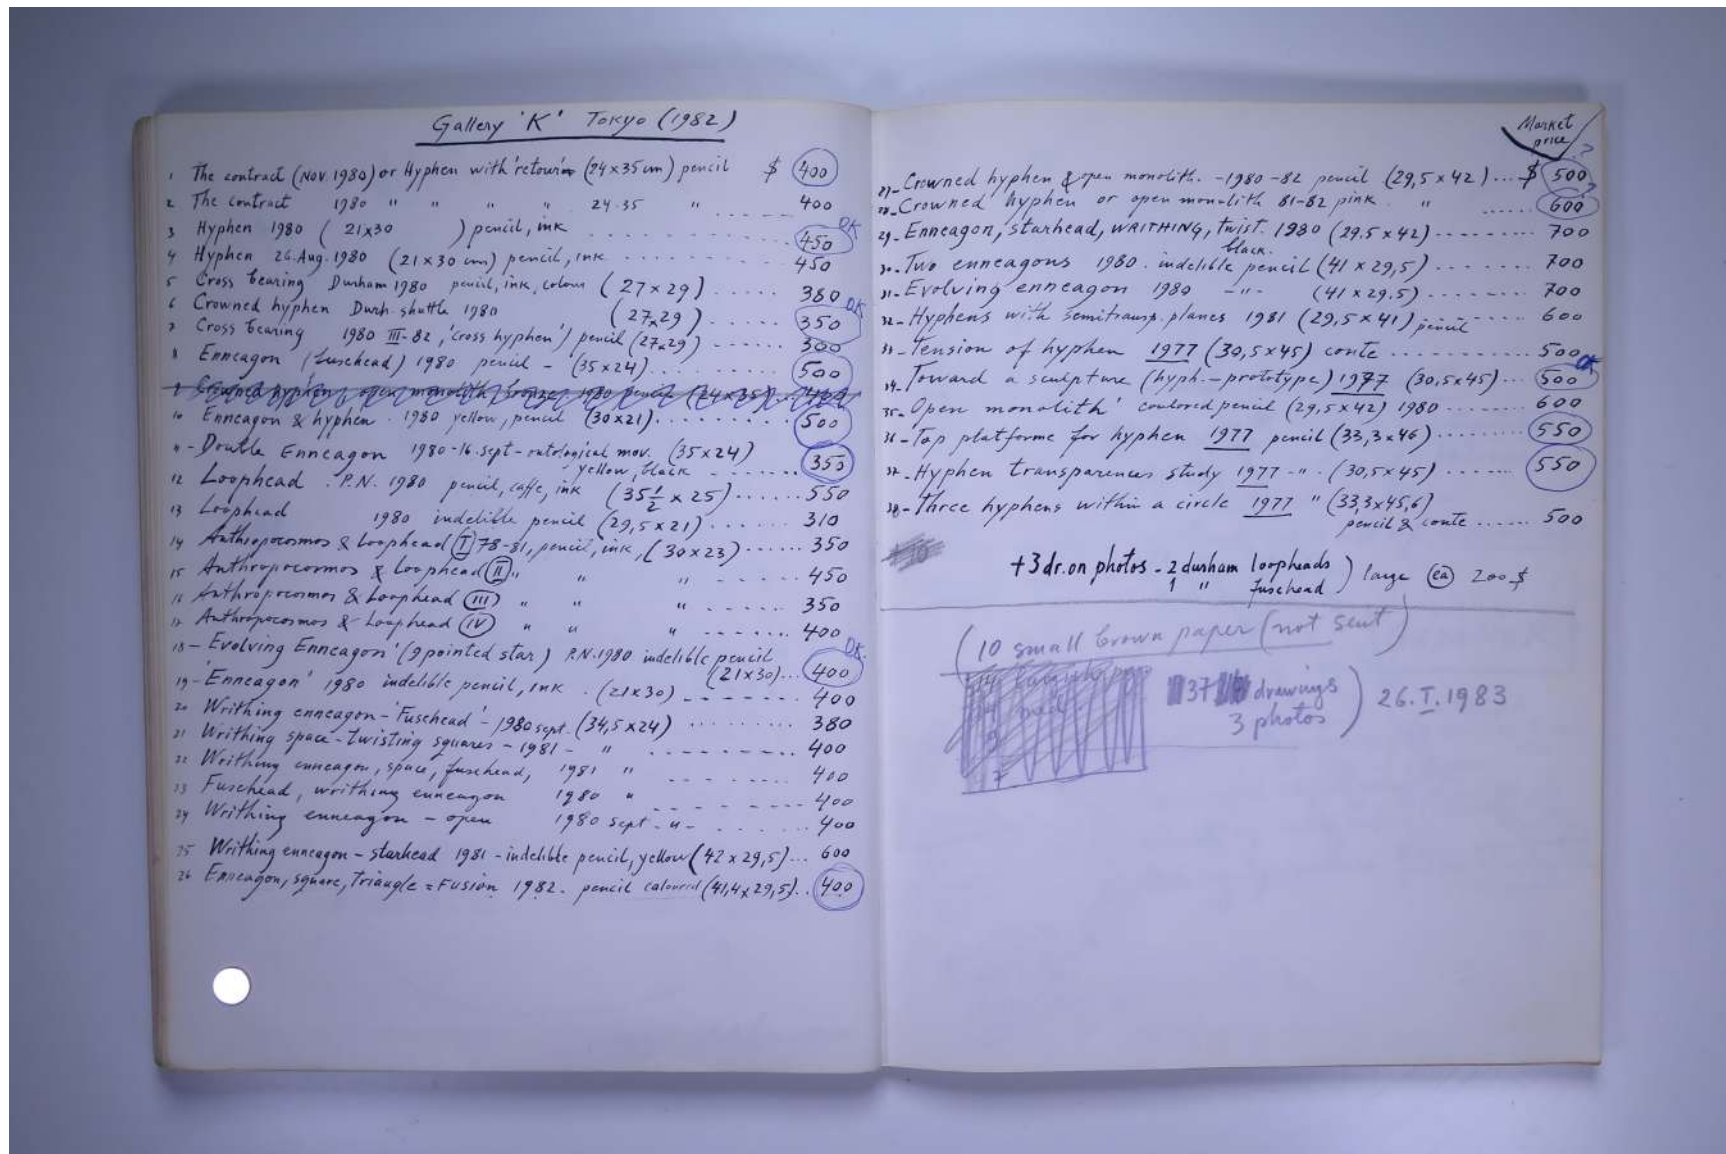 Gallery 'K' Tokyo (1982)
1 The contract (Nov 1980) or Hyphen with 'retour' (24x35 cm) pencil $ 400
2 The contract 1980 " " " " 24.35 " ------ 400
3 Hyphen 1980 ( 21x30 ) pencil, ink ........ 450 OK
4 Hyphen 26.Aug.1980 (21x30 cm) pencil, ink ........ 450
5 Cross bearing Durham 1980 pencil, ink, colour (27x29) ..... 380
6 Crowned hyphen Durh. shuttle 1980 (27x29) ...... 350 OK
7 Cross bearing 1980 III-82, 'cross hyphen') pencil (27x29) ...... 300
8 Enneagon (fusehead) 1980 pencil - (35x24) ....... 500
9 Crowned hyphen, open monolith bronze 1980 pencil (24x35)...
10 Enneagon & hyphen. 1980 yellow, pencil (30x21) ....... 500
11 - Double Enneagon 1980-16.sept- mov. (35x24)
yellow, black ------- 350
12 Loophead . P.N. 1980 pencil, caffe, ink (35 1/2 x 25) ...... 550
13 Loophead 1980 indelible pencil (29,5x21) ....... 310
14 Anthropocosmos & Loophead (I) 78-81, pencil, ink, (30x23) ...... 350
15 Anthropocosmos & Loophead (II) " " " ------ 450
16 Anthropocosmos & Loophead (III) " " " ------ 350
17 Anthropocosmos & Loophead (IV) " " " ------ 400
18 - Evolving Enneagon' (9 pointed star) P.N. 1980 indelible pencil
(21x30)... 400 OK.
19 - 'Enneagon' 1980 indelible pencil, ink . (21x30) ------- 400
20 Writhing enneagon - 'Fusehead' - 1980 sept. (34,5x24) ........ 380
21 Writhing space - twisting squares - 1981 - " -------- 400
22 Writhing enneagon, space, fusehead, 1981 " ------- 400
23 Fusehead, writhing enneagon 1980 " -------- 400
24 Writhing enneagon - open 1980 sept - " - ...... 400
25 Writhing enneagon - starhead 1981 - indelible pencil, yellow (42x29,5)... 600
26 Enneagon, square, Triangle = Fusion 1982. pencil coloured (41,4x29,5).. 400
Market
price
27 - Crowned hyphen & open monolith. - 1980-82 pencil (29,5x42) ... $ 500 ?
28 - Crowned hyphen or open monolith 81-82 pink. " ..... 600 ?
29 - Enneagon, starhead, WRITHING, twist. 1980 (29.5x42) -------- 700
black.
30 - Two enneagons 1980. indelible pencil (41x29,5) ....... 700
31 - Evolving enneagon 1980 - " - (41x29,5) ........ 700
32 - Hyphens with semitransp. planes 1981 (29,5x41) pencil ------ 600
33 - Tension of hyphen 1977 (30,5x45) conte ........... 500
34 - Toward a sculpture (hyph. - prototype) 1977 (30,5x45) ... 500 OK
35 - Open monolith' coulored pencil (29,5x42) 1980 ........ 600
36 - Top platforme for hyphen 1977 pencil (33,3x46) ........ 550
37 - Hyphen transparences study 1977 - " . (30,5x45) ....... 550
38 - Three hyphens within a circle 1977 " (33,3x45,6)
pencil & conte ...... 500
+ 3 dr. on photos - 2 durham loopheads ) large (ea) 200 $
1 " fusehead
(10 small brown paper (not sent)
37 drawings
3 photos ) 26.I.1983